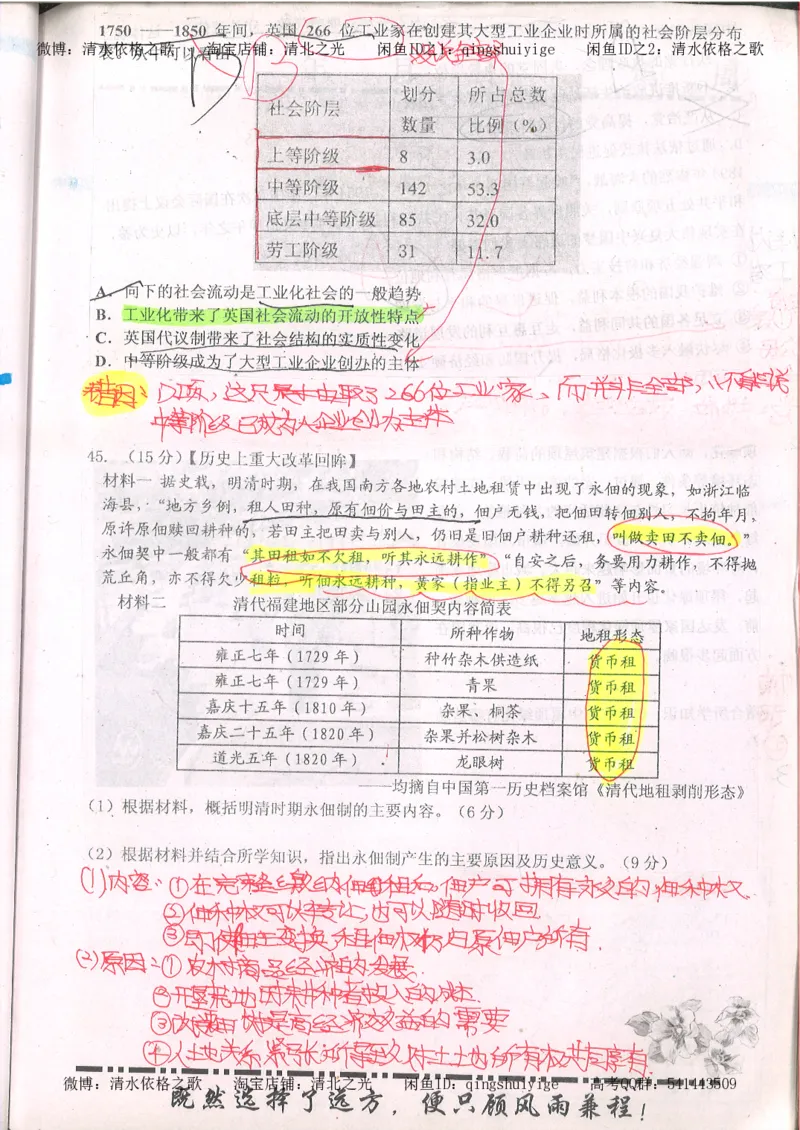 1750 ——1850 年间，英国 266 位工业家在创建其大型工业企业时所属的社会阶层分布
微博：清水依格之歌 淘宝店铺：清北之光 闲鱼ID之1：qingshuiyige 闲鱼ID之2：清水依格之歌
表。从中可以看出
社会阶层 划分数量 所占总数比例（%）
上等阶级 8 3.0
中等阶级 142 53.3
底层中等阶级 85 32.0
劳工阶级 31 11.7
A. 向下的社会流动是工业化社会的一般趋势
B. 工业化带来了英国社会流动的开放性特点
C. 英国代议制带来了社会结构的实质性变化
D. 中等阶级成为了大型工业企业创办的主体
错因：D项，这只是抽取了266位工业家，而并非全部，
中等阶级已成为企业创办主体
45. （15分）【历史上重大改革回眸】
材料一 据史载，明清时期，在我国南方各地农村土地租赁中出现了永佃的现象，如浙江临
海县，“地方乡例，租人田种，原有佃价与田主的，佃户无钱，把佃田转佃别人，不拘年月，
原许原佃赎回耕种的，若田主把田卖与别人，仍旧是旧佃户耕种还租，叫做卖田不卖佃。”
永佃契中一般都有“其田租如不欠租，听其永远耕作”“自安之后，务要用力耕作，不得抛
荒丘角，亦不得欠少租粒，听佃永远耕种，黄家（指业主）不得另召”等内容。
材料二 清代福建地区部分山园永佃契内容简表
时间 所种作物 地租形态
雍正七年（1729 年） 种竹杂木供造纸 货币租
雍正七年（1729 年） 青果 货币租
嘉庆十五年（1810 年） 杂果、桐茶 货币租
嘉庆二十五年（1820 年） 杂果并松树杂木 货币租
道光五年（1820 年） 龙眼树 货币租
——均摘自中国第一历史档案馆《清代地租剥削形态》
（1）根据材料，概括明清时期永佃制的主要内容。（6分）
（2）根据材料并结合所学知识，指出永佃制产生的主要原因及历史意义。（9分）
(1)内容：①在完整缴纳佃租后佃户可拥有永久的佃种权.
②佃种权可以转让,也可以随时收回
③即使田主变换,租佃权构归原佃户所有.
(2)原因：①农村商品经济的发展.
②开垦荒地 耕种者投入的成本
③改善 提高经济效益的需要
④人地关系紧张 土地所有权共同享有.
微博：清水依格之歌 淘宝店铺：清北之光 闲鱼ID：qingshuiyige 高考QQ群：541443509
既然选择了远方，便只顾风雨兼程！